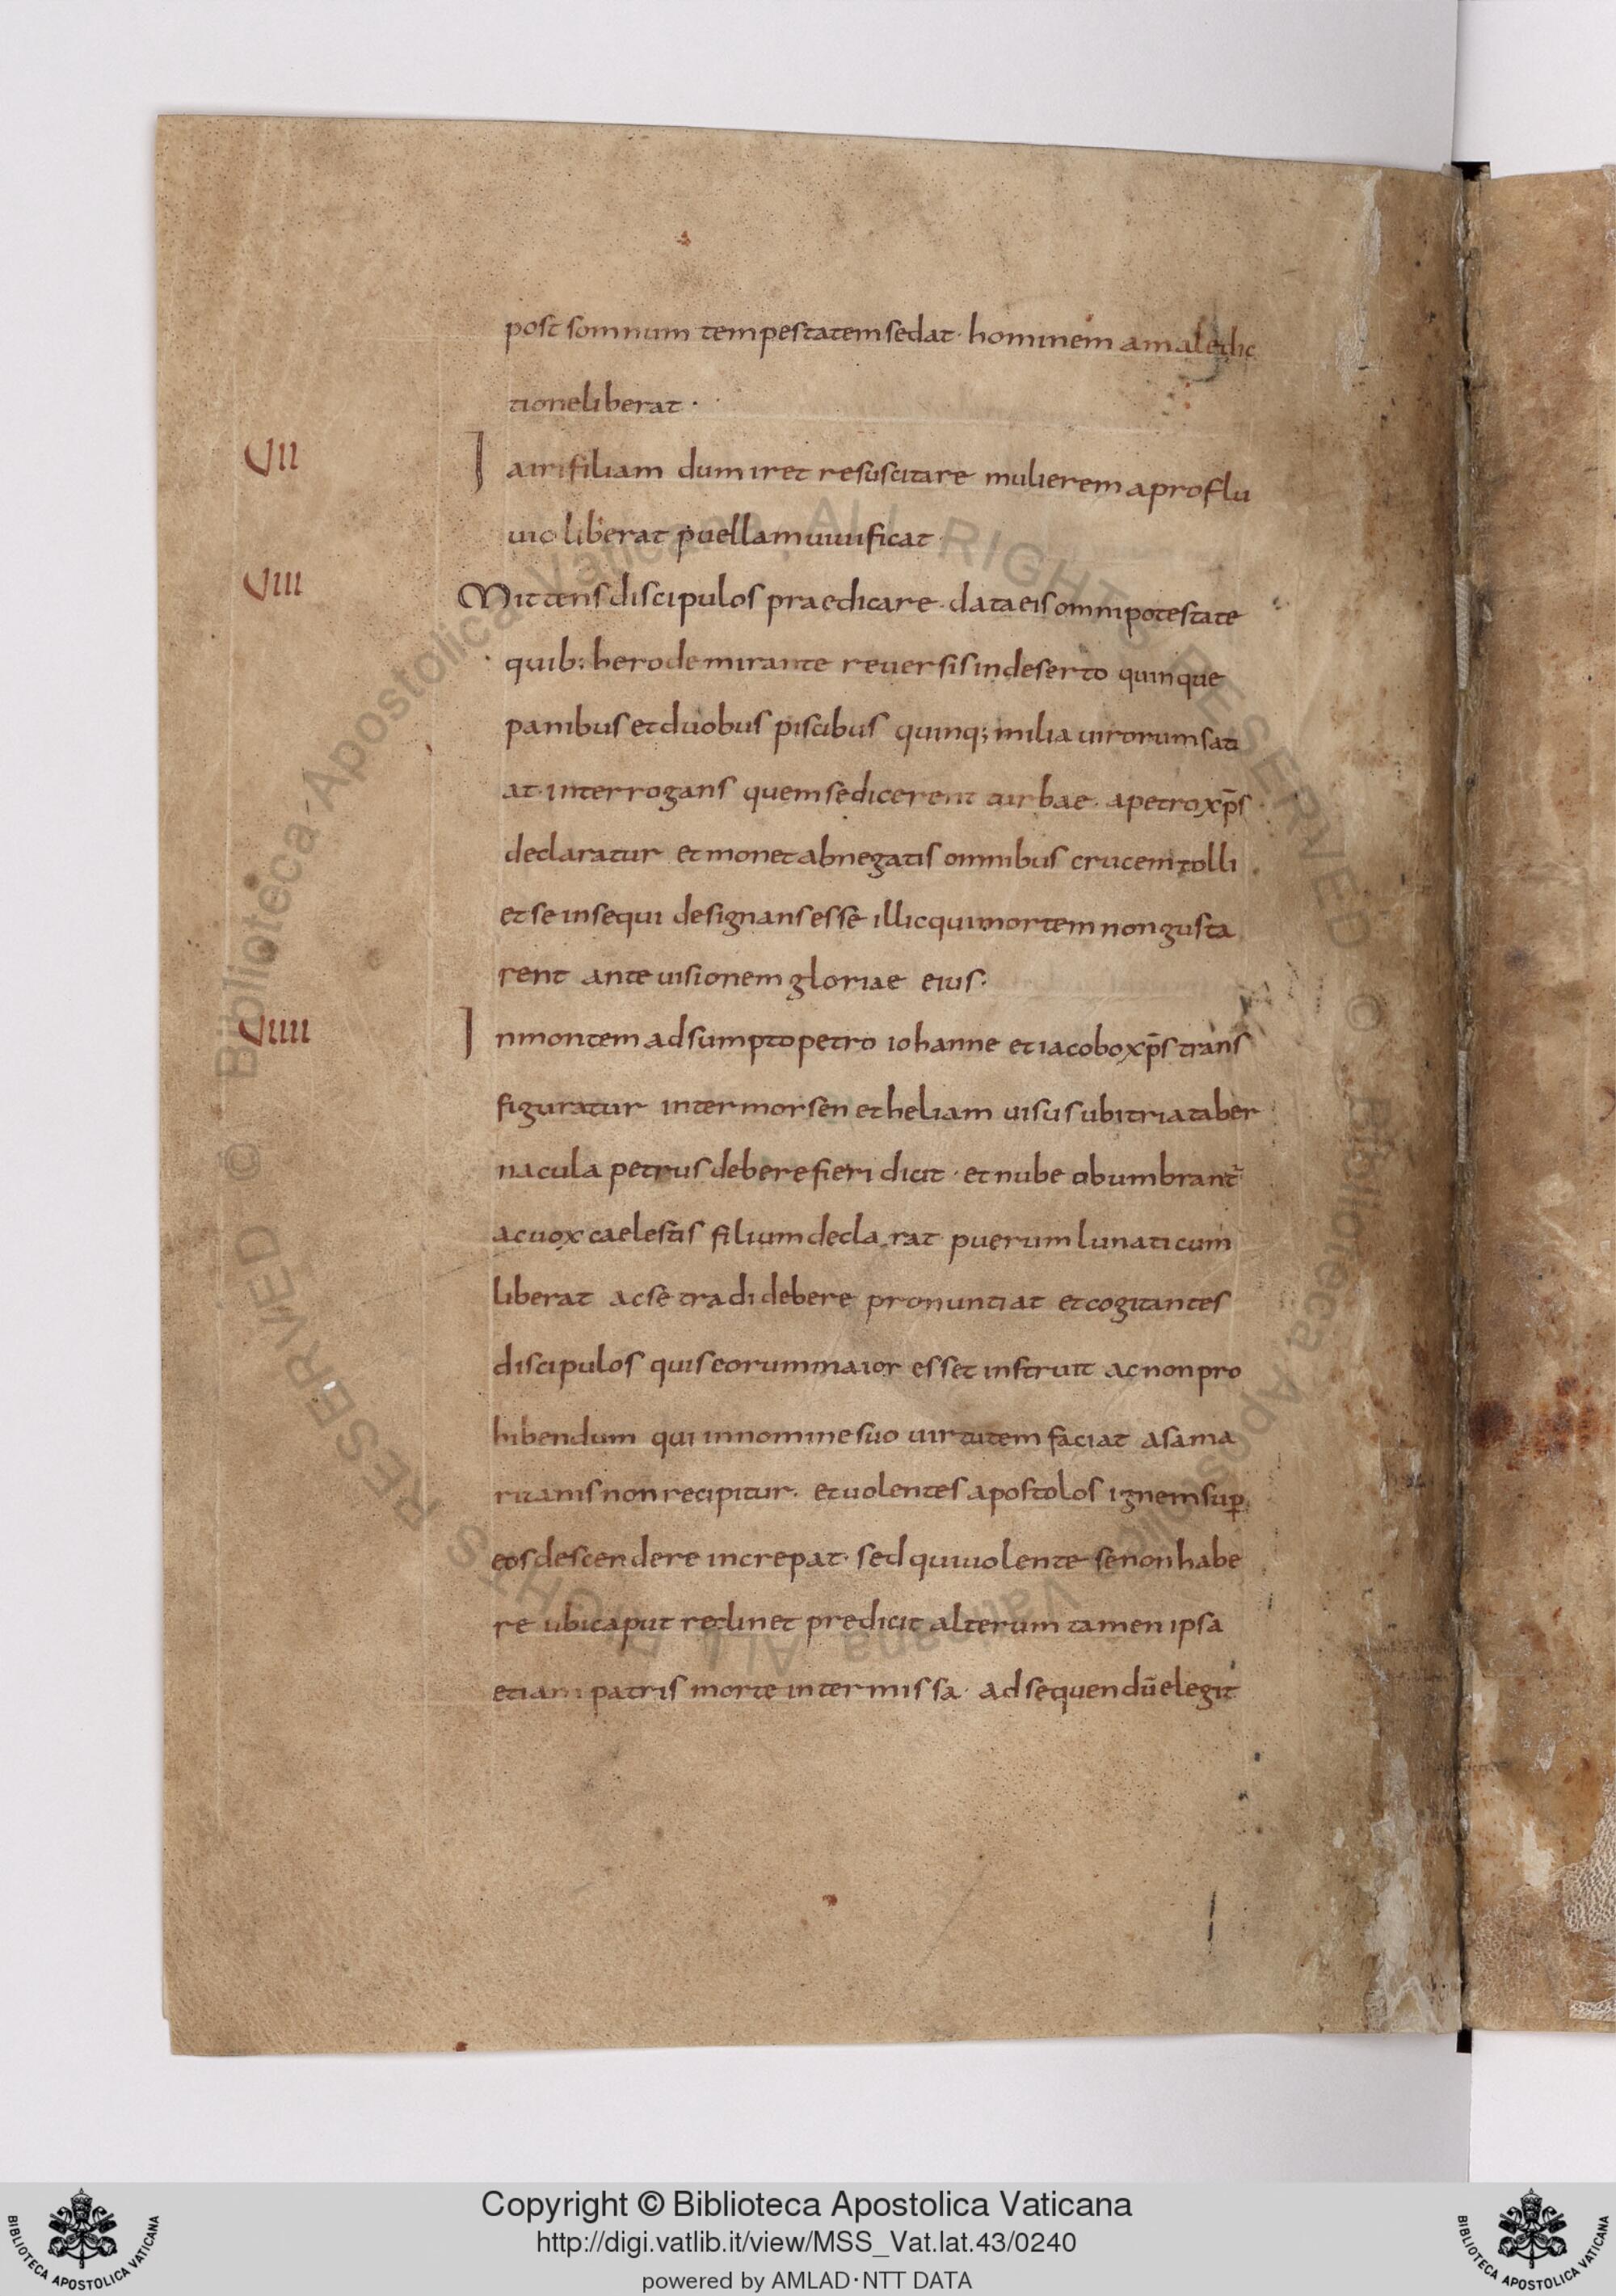 post somnum tempestatem sedat · hominem a maledic
tione liberat ·
VII
Iairi filiam dum iret resuscitare mulierem a proflu
uio liberat puellam uiuificat
VIII
Mittens discipulos praedicare · data eis omni potestate
quib; herode mirante reuersis in deserto quinque
panibus et duobus piscibus quinq; milia uirorum sati
at · interrogans quem se dicerent turbae · a petro xp̄s
declaratur et monet abnegatis omnibus crucem tolli
et se insequi designans esse illic qui mortem non gusta
rent ante uisionem gloriae eius ·
VIIII
In montem adsumpto petro iohanne et iacobo xp̄s trans
figuratur inter morsen et heliam uisus ubi tria taber
nacula petrus debere fieri dicit · et nube obumbrant̄
ac uox caelestis filium declarat puerum lunaticum
liberat ac se tradi debere pronuntiat et cogitantes
discipulos quis eorum maior esset instruit ac non pro
hibendum qui in nomine suo uirtutem faciat a sama
ritanis non recipitur · et uolentes apostolos ignem sup̱
eos descendere increpat · sed qui uolente se non habe
re ubi caput reclinet predicit alterum tamen ipsa
etiam patris morte intermissa · ad sequendū elegit
Copyright © Biblioteca Apostolica Vaticana
http://digi.vatlib.it/view/MSS_Vat.lat.43/0240
powered by AMLAD·NTT DATA
BIBLIOTECA APOSTOLICA VATICANA
BIBLIOTECA APOSTOLICA VATICANA
© Biblioteca Apostolica Vaticana ALL RIGHTS RESERVED © Biblioteca Apostolica Vaticana ALL RIGHTS RESERVED